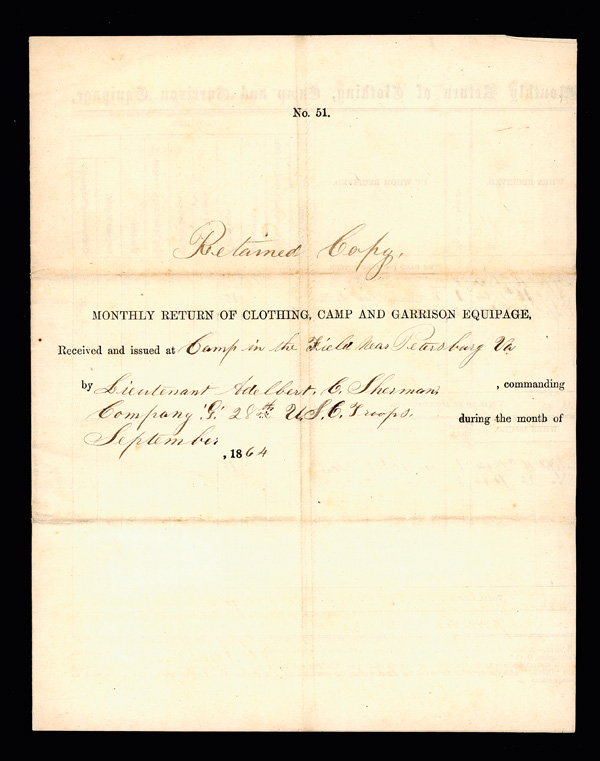 No. 51.
Retained Copy.
MONTHLY RETURN OF CLOTHING, CAMP AND GARRISON EQUIPAGE,
Received and issued at Camp in the Field near Petersburg Va
by Lieutenant Adelbert. E. Sherman, , commanding
Company "G" 28th U.S.C. Troops. during the month of
September , 1864